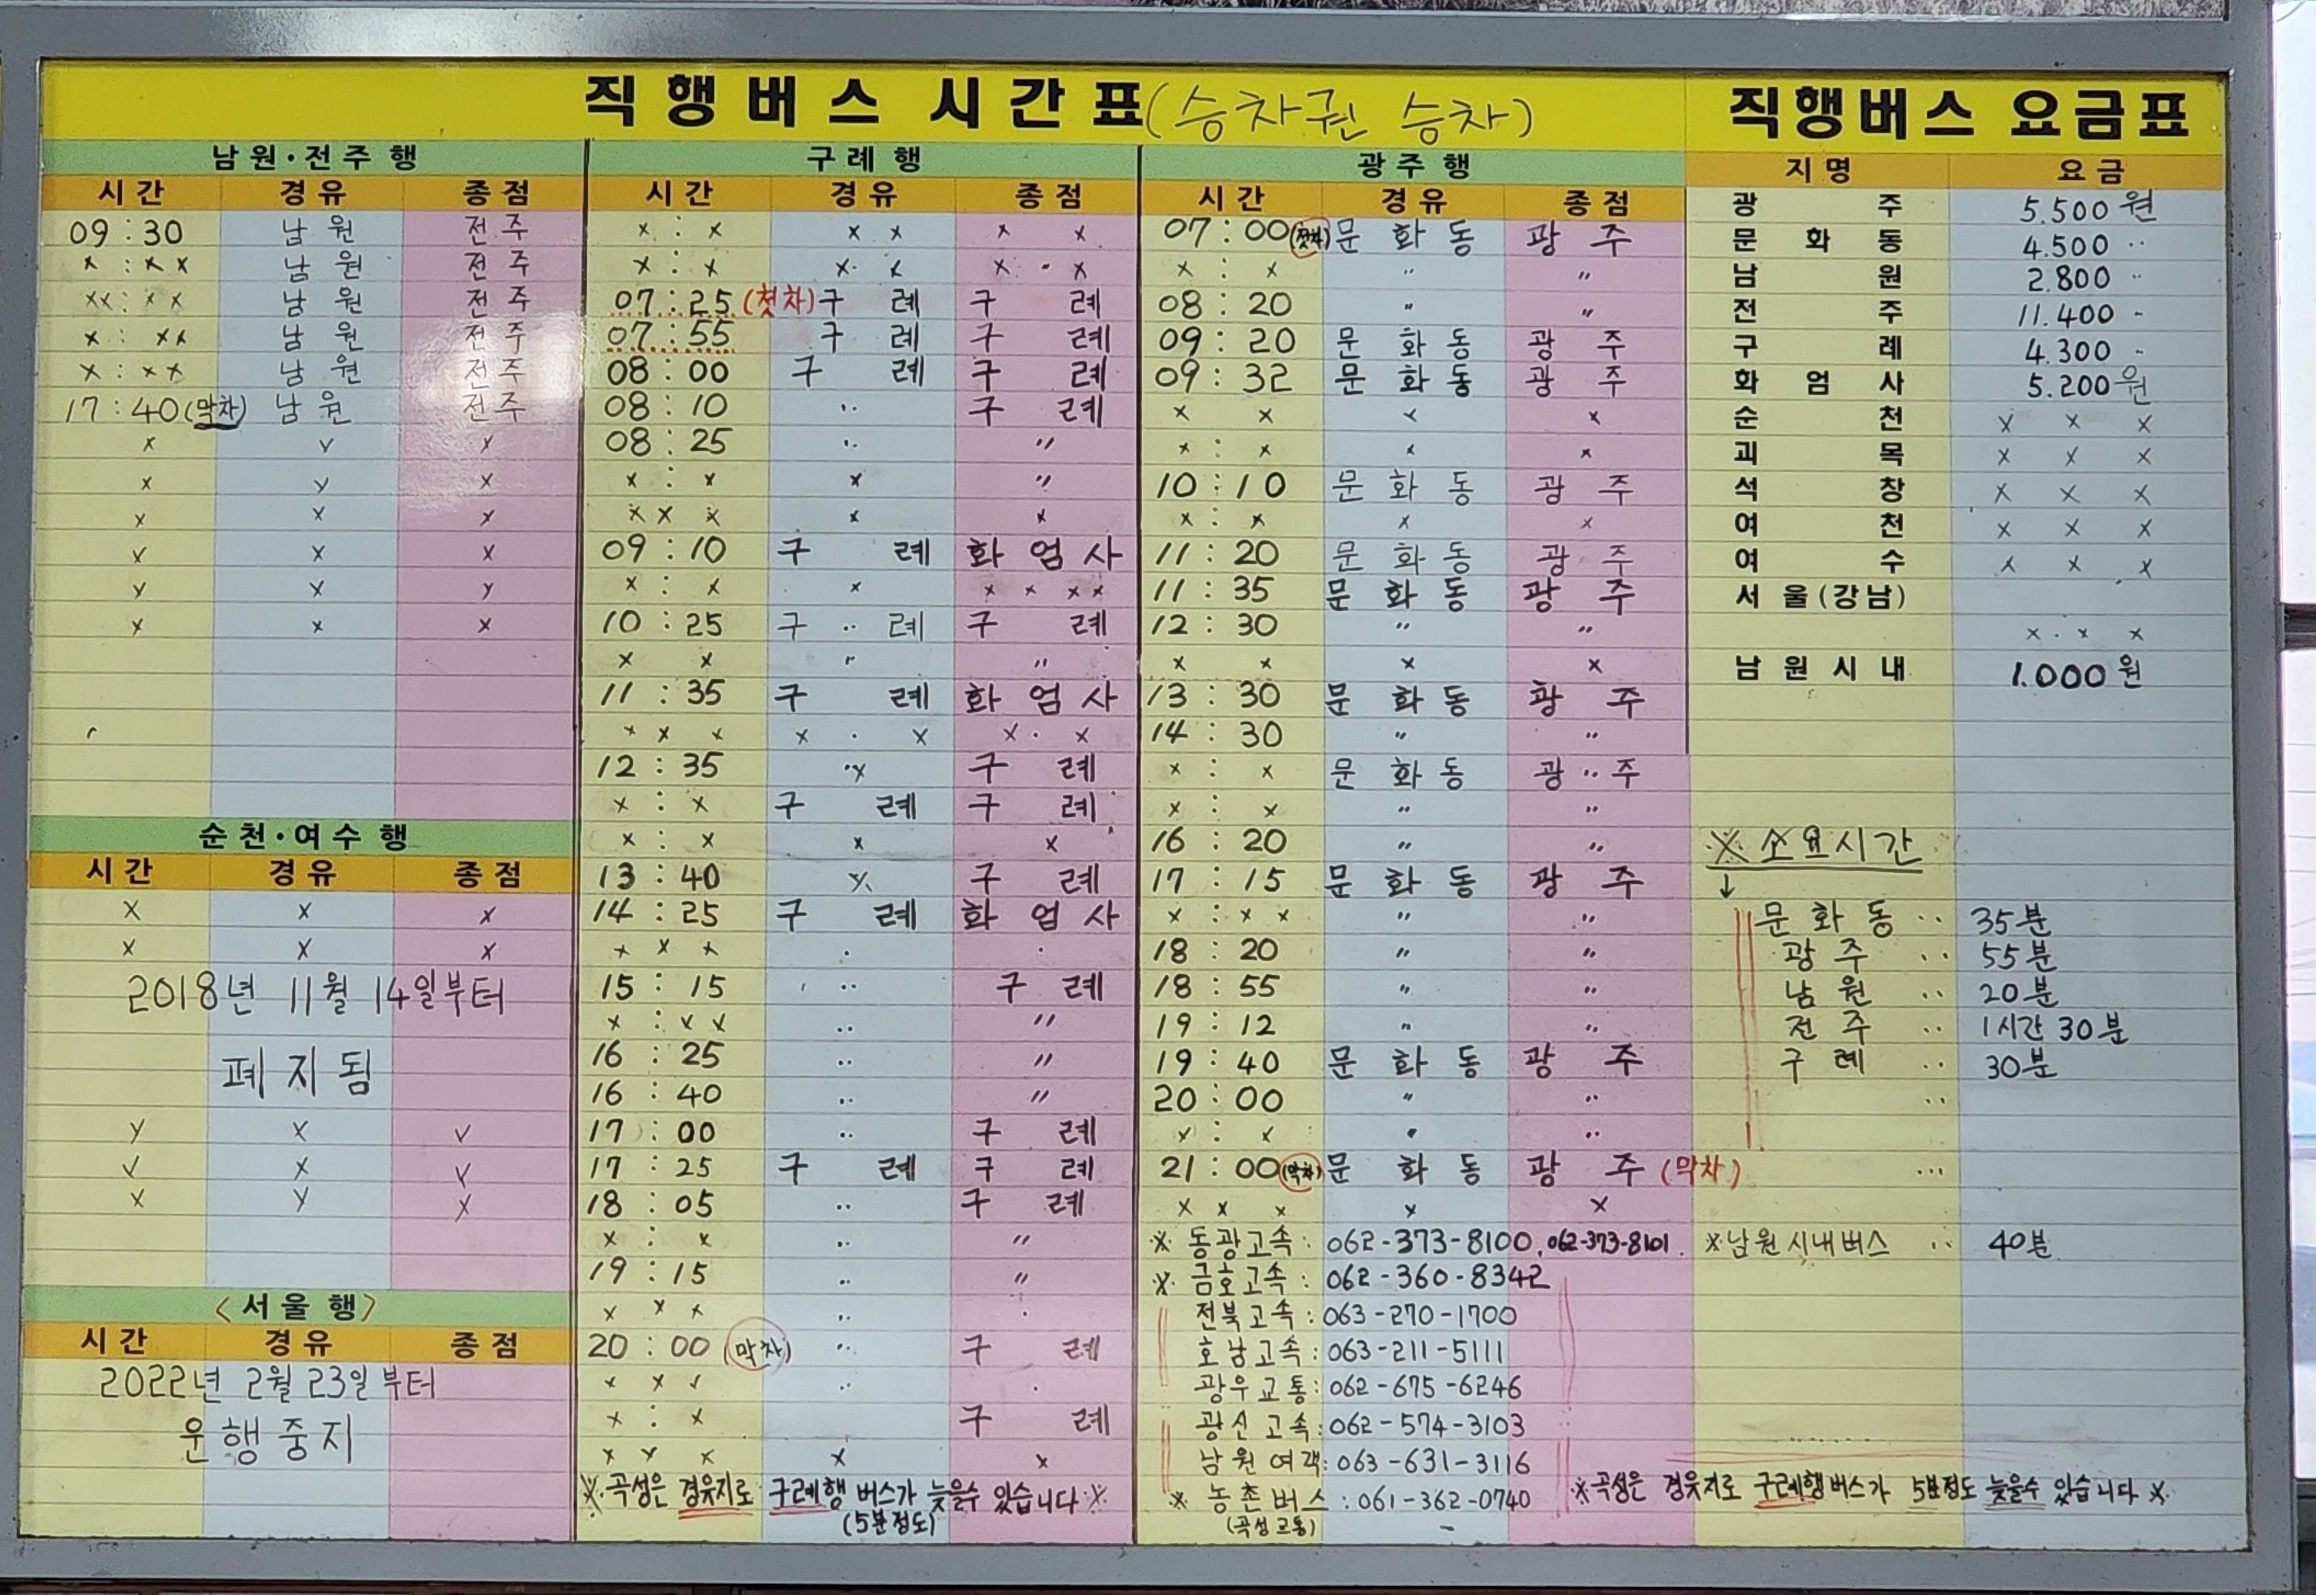 직행버스 시간표(승차권 승차)
남원·전주행
시간 경유 종점
09:30 남원 전주
x : x x 남원 전주
xx : x x 남원 전주
x : xx 남원 전주
x : x x 남원 전주
17:40(막차) 남원 전주
x v x
x y x
x x x
v x x
y x y
x x x
순천·여수행
시간 경유 종점
x x x
x x x
2018년 11월 14일부터
폐지됨
y x v
v x v
x y x
<서울행>
시간 경유 종점
2022년 2월 23일부터
운행중지
구례행
시간 경유 종점
x : x x x x x
x : x x · x x · x
07:25(첫차) 구례 구례
07:55 구례 구례
08:00 구례 구례
08:10 ·· 구례
08:25 ·· 〃
x : x x 〃
x x x x x
09:10 구례 화엄사
x : x x x x x x
10:25 구 ·· 례 구례
x x 〃 〃
11:35 구례 화엄사
x x x x · x x · x
12:35 ·x 구례
x : x 구례 구례
x : x x x
13:40 x 구례
14:25 구례 화엄사
x x x · ·
15:15 ·· 구례
x : x x ·· 〃
16:25 ·· 〃
16:40 ·· 〃
17:00 ·· 구례
17:25 구례 구례
18:05 ·· 구례
x : x ·· 〃
19:15 ·· 〃
x x x ·· ·
20:00(막차) ·· 구례
x x v ·· ·
x : x 구례
x x x x x
※곡성은 경유지로 구례행 버스가 늦을수 있습니다※
(5분정도)
광주행
시간 경유 종점
07:00(첫차) 문화동 광주
x : x 〃 〃
08:20 〃 〃
09:20 문화동 광주
09:32 문화동 광주
x x x x
x : x x x
10:10 문화동 광주
x : x x x
11:20 문화동 광주
11:35 문화동 광주
12:30 〃 〃
x x x x
13:30 문화동 광주
14:30 〃 〃
x : x 문화동 광··주
x : x 〃 〃
16:20 〃 〃
17:15 문화동 광주
x : x x 〃 〃
18:20 〃 〃
18:55 〃 〃
19:12 〃 〃
19:40 문화동 광주
20:00 〃 ··
x : x 〃 ··
21:00(막차) 문화동 광주(막차)
x x x x x
※ 동광고속: 062-373-8100, 062-373-8101.
※ 금호고속: 062-360-8342
전북고속: 063-270-1700
호남고속: 063-211-5111
광우교통: 062-675-6246
광신고속: 062-574-3103
남원여객: 063-631-3116
※ 농촌버스: 061-362-0740
(곡성교통)
직행버스 요금표
지명 요금
광주 5.500원
문화동 4.500 ··
남원 2.800 ··
전주 11.400 -
구례 4.300 -
화엄사 5.200원
순천 x x x
괴목 x x x
석창 x x x
여천 x x x
여수 x x x
서울(강남)
x · x x
남원시내 1.000원
※ 소요시간
↓
문화동 ·· 35분
광주 ·· 55분
남원 ·· 20분
전주 ·· 1시간 30분
구례 ·· 30분
··
···
※남원시내버스 ·· 40분
※곡성은 경유지로 구례행버스가 5분정도 늦을수 있습니다※